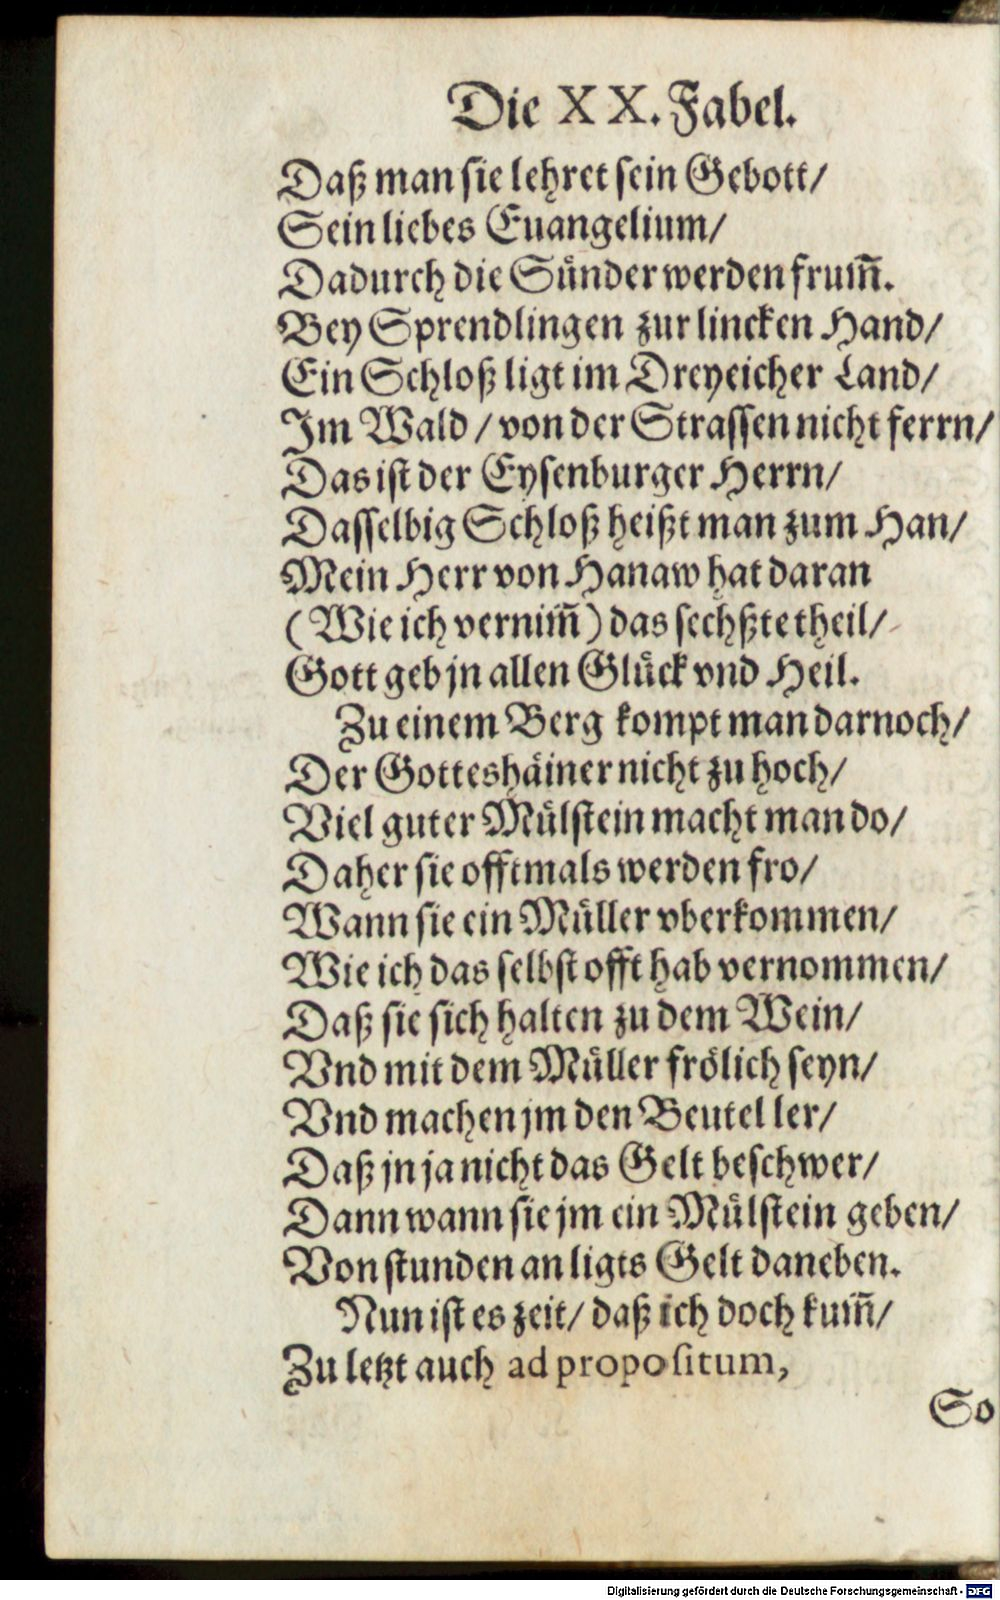 Die XX. Fabel.
Daß man sie lehret sein Gebott/
Sein liebes Euangelium/
Dadurch die Sünder werden frum̃.
Bey Sprendlingen zur lincken Hand/
Ein Schloß ligt im Dreyeicher Land/
Im Wald / von der Strassen nicht ferrn/
Das ist der Eysenburger Herrn/
Dasselbig Schloß heißt man zum Han/
Mein Herr von Hanaw hat daran
(Wie ich vernim̃) das sechßte theil/
Gott geb jn allen Glück vnd Heil.
Zu einem Berg kompt man darnoch/
Der Gotteshäiner nicht zu hoch/
Viel guter Mülstein macht man do/
Daher sie offtmals werden fro/
Wann sie ein Müller vberkommen/
Wie ich das selbst offt hab vernommen/
Daß sie sich halten zu dem Wein/
Vnd mit dem Müller frölich seyn/
Vnd machen jm den Beutel ler/
Daß jn ja nicht das Gelt beschwer/
Dann wann sie jm ein Mülstein geben/
Von stunden an ligts Gelt daneben.
Nun ist es zeit/ daß ich doch kum̃/
Zu letzt auch ad propositum,
So
Digitalisierung gefördert durch die Deutsche Forschungsgemeinschaft - DFG